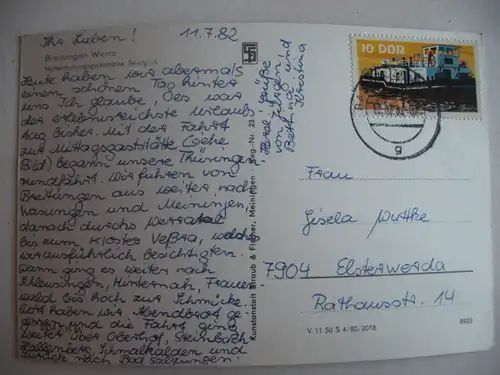 Ihr Lieben! 11.7.82
Breitungen Werra
Naherholungsgaststätte Seeblick
Heute haben wir abermals
einen schönen Tag hinter
uns. Ich glaube, des war
der erlebnisreichste Urlaubs-
tag bisher. Mit der Fahrt
zur Mittagsgaststätte (siehe
Bild) begann unsere Thüringen-
rundfahrt. Wir fuhren von
Breitungen aus weiter nach
Wasungen und Meiningen,
danach durchs Werratal
bis zum Kloster Veßra, welches
wir ausführlich besichtigten.
Dann ging es weiter nach
Schleusingen, Hinternah, Frauen-
wald bis hoch zur Schmücke.
Dort haben wir Abendbrot ge-
gessen und die Fahrt ging
weiter über Oberhof, Steinbach
Hallenberg, Schmalkalden und
zurück nach Bad Salzungen.
Herzl. Grüße
von Jürgen,
Bettina und
Kristina
Kunstanstalt Straub & Fischer, Meiningen
10 DDR
g
Frau
Gisela Wuttke
7904 Elsterwerda
Rathausstr. 14
V 11 50 S 4/80/2018
8922